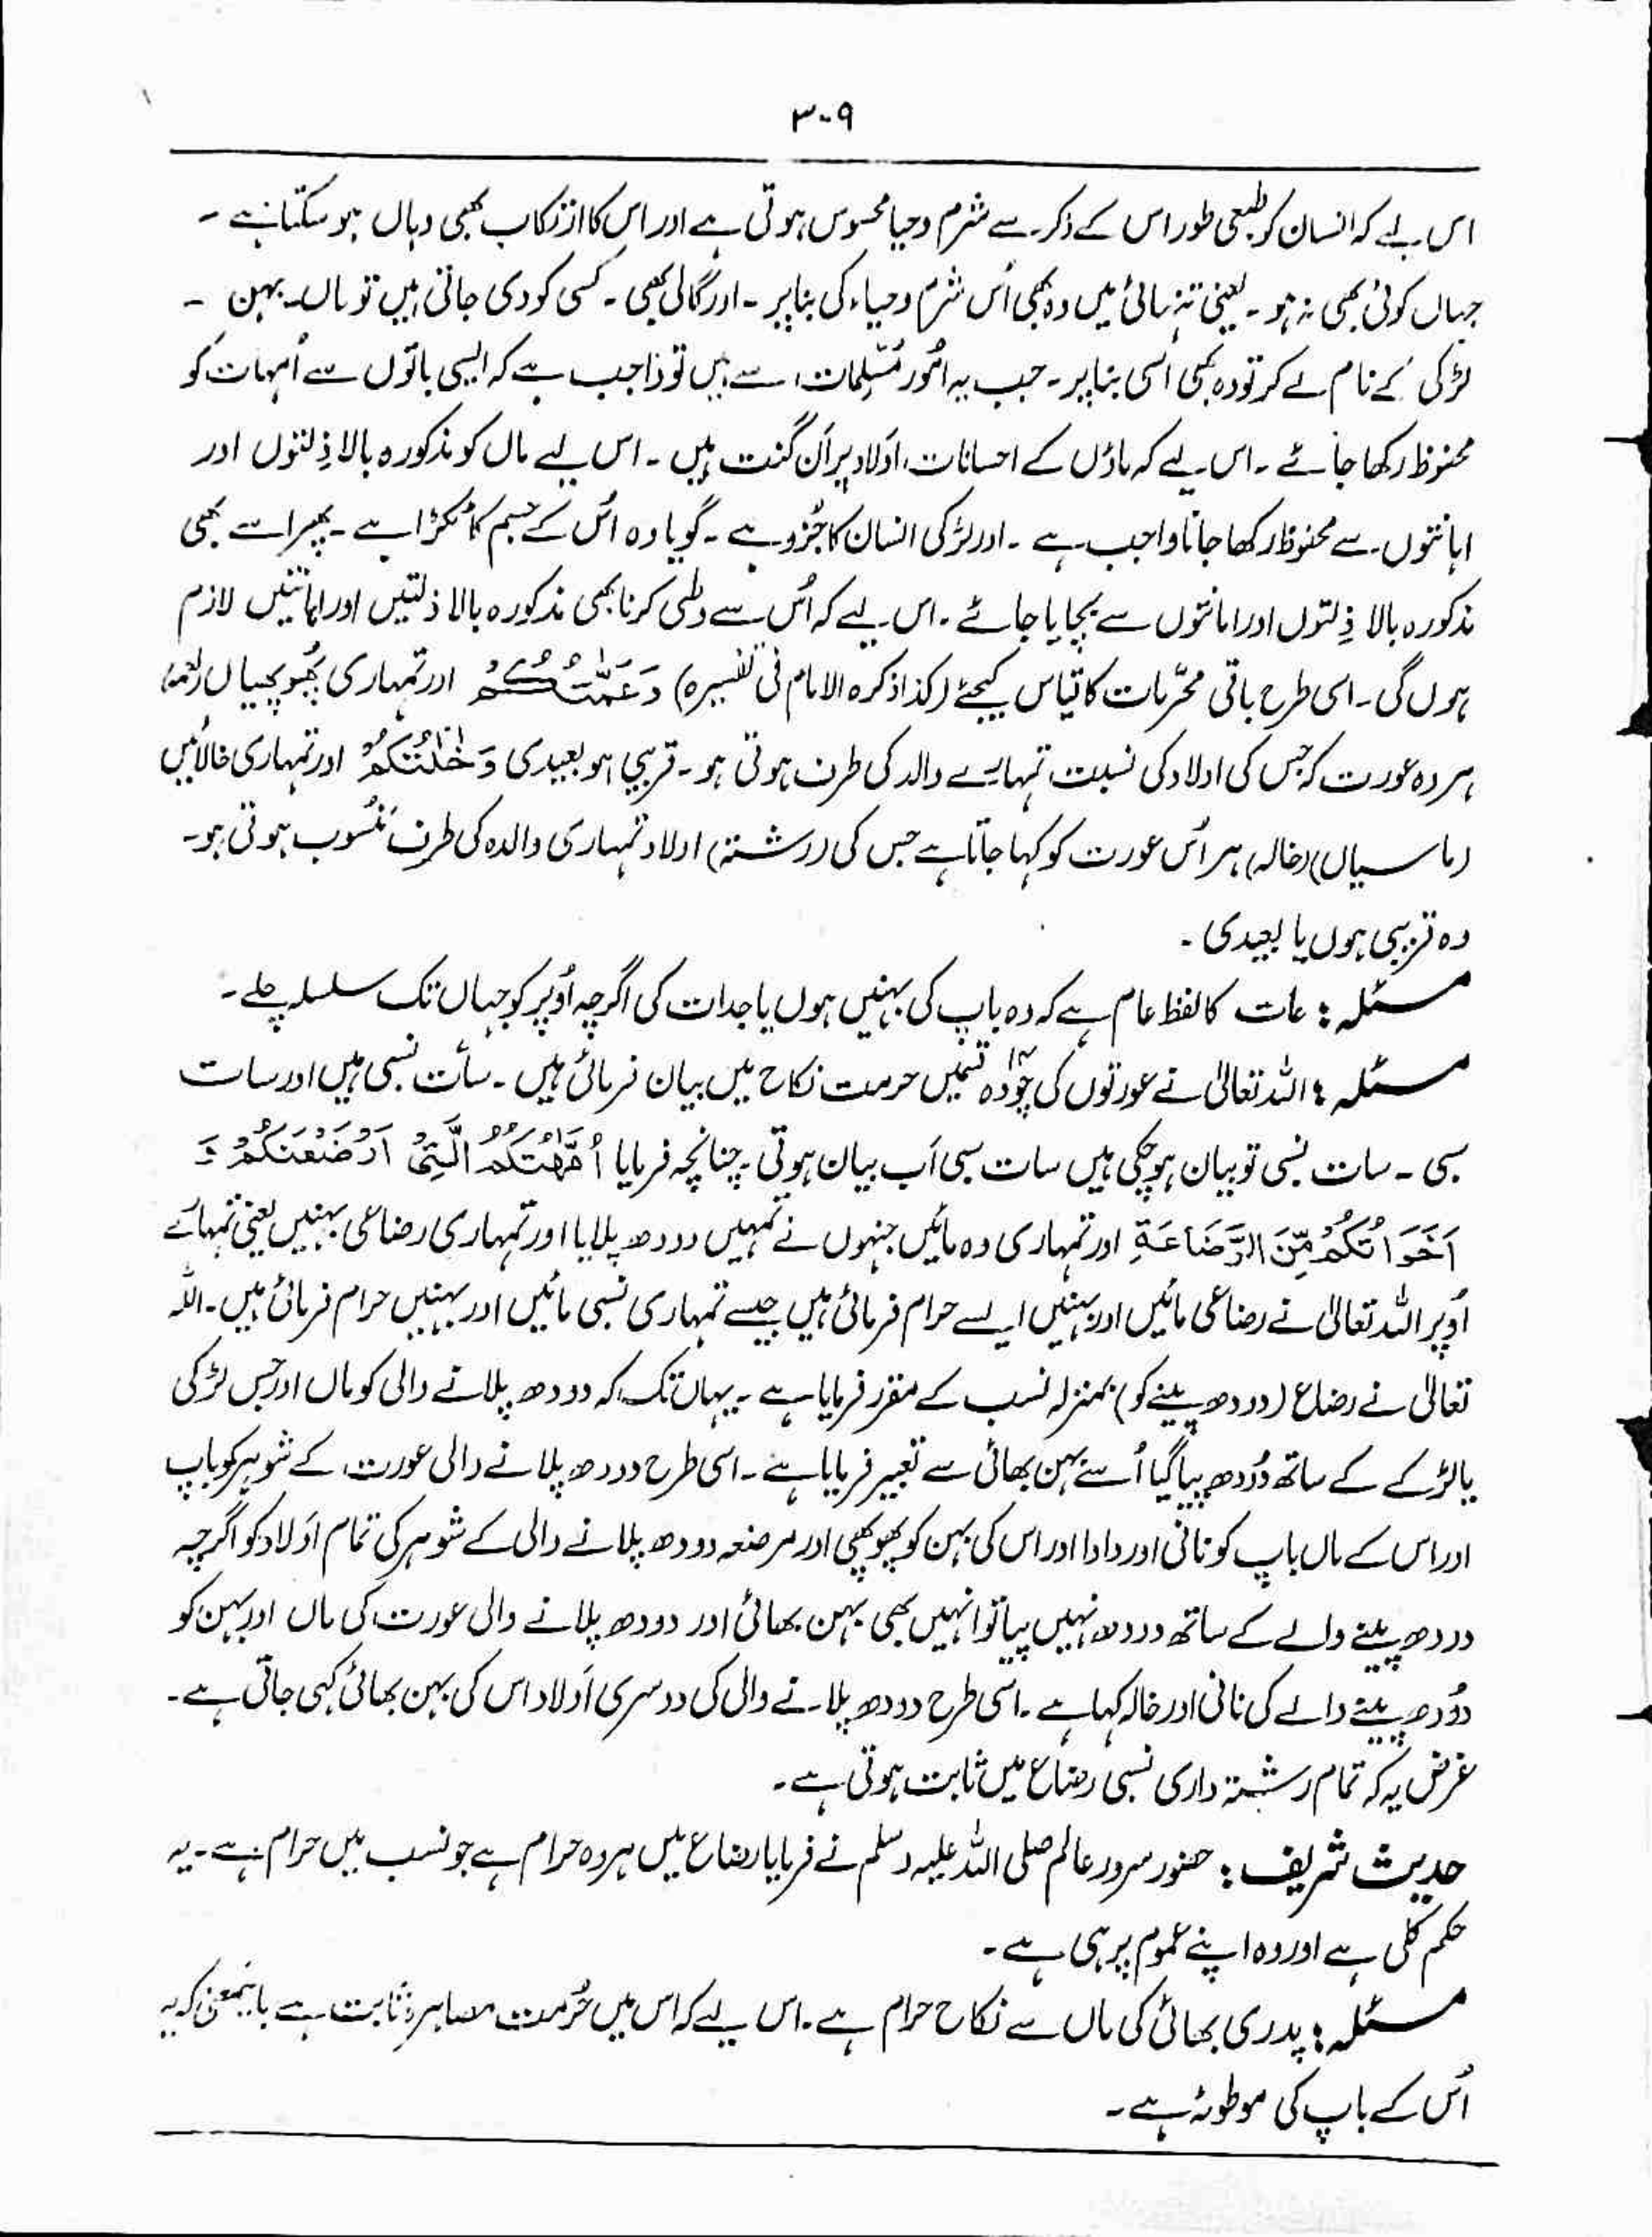 ۳۰۹
اس لیے کہ انسان کو طبعی طور اس کے ذکر سے شرم وحیا محسوس ہوتی ہے اور اس کا ارتکاب بھی وہاں ہو سکتا ہے ۔
جہاں کوئی بھی نہ ہو ۔ یعنی تنہائی میں وہ بھی اُس شرم وحیاء کی بنا پر ۔ اور گالی بھی ۔ کسی کو دی جاتی ہیں تو ماں ۔ بہن ۔
لڑکی کے نام لے کر تو وہ بھی اسی بنا پر ۔ جب یہ اُمُور مُسّلمات سے ہیں تو واجب ہے کہ ایسی باتوں سے اُمہات کو
محفوظ رکھا جائے ۔ اس لیے کہ ماؤں کے احسانات، اَولاد پر اَن گنت ہیں ۔ اس لیے ماں کو مذکورہ بالا ذِلتوں اور
اہانتوں سے محفوظ رکھا جانا واجب ہے ۔ اور لڑکی انسان کا جُزو ہے ۔ گویا وہ اُس کے جسم کا ٹکڑا ہے ۔ پھر اسے بھی
مذکورہ بالا ذِلتوں اور اہانتوں سے بچایا جائے ۔ اس لیے کہ اُس سے وطی کرنا بھی مذکورہ بالا ذلتیں اور اہانتیں لازم
ہوں گی ۔ اسی طرح باقی محرّمات کا قیاس کیجئے (کذا ذکرہ الامام فی تفسیرہ) وَعَمّٰتُكُمْ اور تمہاری پُھوپھیاں یعنی
ہر وہ عورت کہ جس کی اولاد کی نسبت تمہارے والد کی طرف ہوتی ہو ۔ قریبی ہو بعیدی وَخٰلٰتُكُمْ اور تمہاری خالائیں
(ماسیاں) (خالہ) ہر اُس عورت کو کہا جاتا ہے جس کی (رشتۃً) اولاد تمہاری والدہ کی طرف مَنسُوب ہوتی ہو ۔
وہ قریبی ہوں یا بعیدی ۔
مسئلہ : عمات کا لفظ عام ہے کہ وہ باپ کی بہنیں ہوں یا جدات کی اگرچہ اُوپر کو جہاں تک سلسلہ چلے ۔
مسئلہ : اللہ تعالیٰ نے عورتوں کی چَودہ ۱۴ قسمیں حرمت نکاح میں بیان فرمائی ہیں ۔ سات نسبی ہیں اور سات
سببی ۔ سات نسبی تو بیان ہو چکی ہیں سات سببی اَب بیان ہوتی ۔ چنانچہ فرمایا اُمَّهٰتُكُمُ الّٰتِيْ اَرْضَعْنَكُمْ وَ
اَخَوَاتُكُمْ مِّنَ الرَّضَاعَةِ اور تمہاری وہ مائیں جنہوں نے تمہیں دودھ پلایا اور تمہاری رضاعی بہنیں یعنی تمہارے
اُوپر اللہ تعالیٰ نے رضاعی مائیں اور بہنیں ایسے حرام فرمائی ہیں جیسے تمہاری نسبی مائیں اور بہنیں حرام فرمائی ہیں ۔ اللہ
تعالیٰ نے رضاع (دودھ پینے کو) بمنزلہ نسب کے مقرر فرمایا ہے ۔ یہاں تک کہ دودھ پلانے والی کو ماں اور جس لڑکی
یا لڑکے کے ساتھ دُودھ پیا گیا اُسے بہن بھائی سے تعبیر فرمایا ہے ۔ اسی طرح دودھ پلانے والی عورت کے شوہر کو باپ
اور اس کے ماں باپ کو نانی اور دادا اور اس کی بہن کو پھوپھی اور مرضعہ دودھ پلانے والی کے شوہر کی تمام اَولاد کو اگرچہ
دردھ پینے والے کے ساتھ دودھ نہیں پیا تو انہیں بھی بہن بھائی اور دودھ پلانے والی عورت کی ماں اور بہن کو
دُودھ پینے والے کی نانی اور خالہ کہا ہے ۔ اسی طرح دودھ پلانے والی کی دوسری اَولاد اس کی بہن بھائی کہی جاتی ہے ۔
غرض یہ کہ تمام رشتہ داری نسبی رضاع میں ثابت ہوتی ہے ۔
حدیث شریف : حضور سرور عالم صلی اللہ علیہ وسلم نے فرمایا رضاع میں ہر وہ حرام ہے جو نسب میں حرام ہے ۔ یہ
حکم کُلی ہے اور وہ اپنے عموم پر ہی ہے ۔
مسئلہ : پدری بھائی کی ماں سے نکاح حرام ہے ۔ اس لیے کہ اس میں حُرمت مصاہرۃ ثابت ہے باینمعنی کہ یہ
اُس کے باپ کی موطوئہ ہے ۔